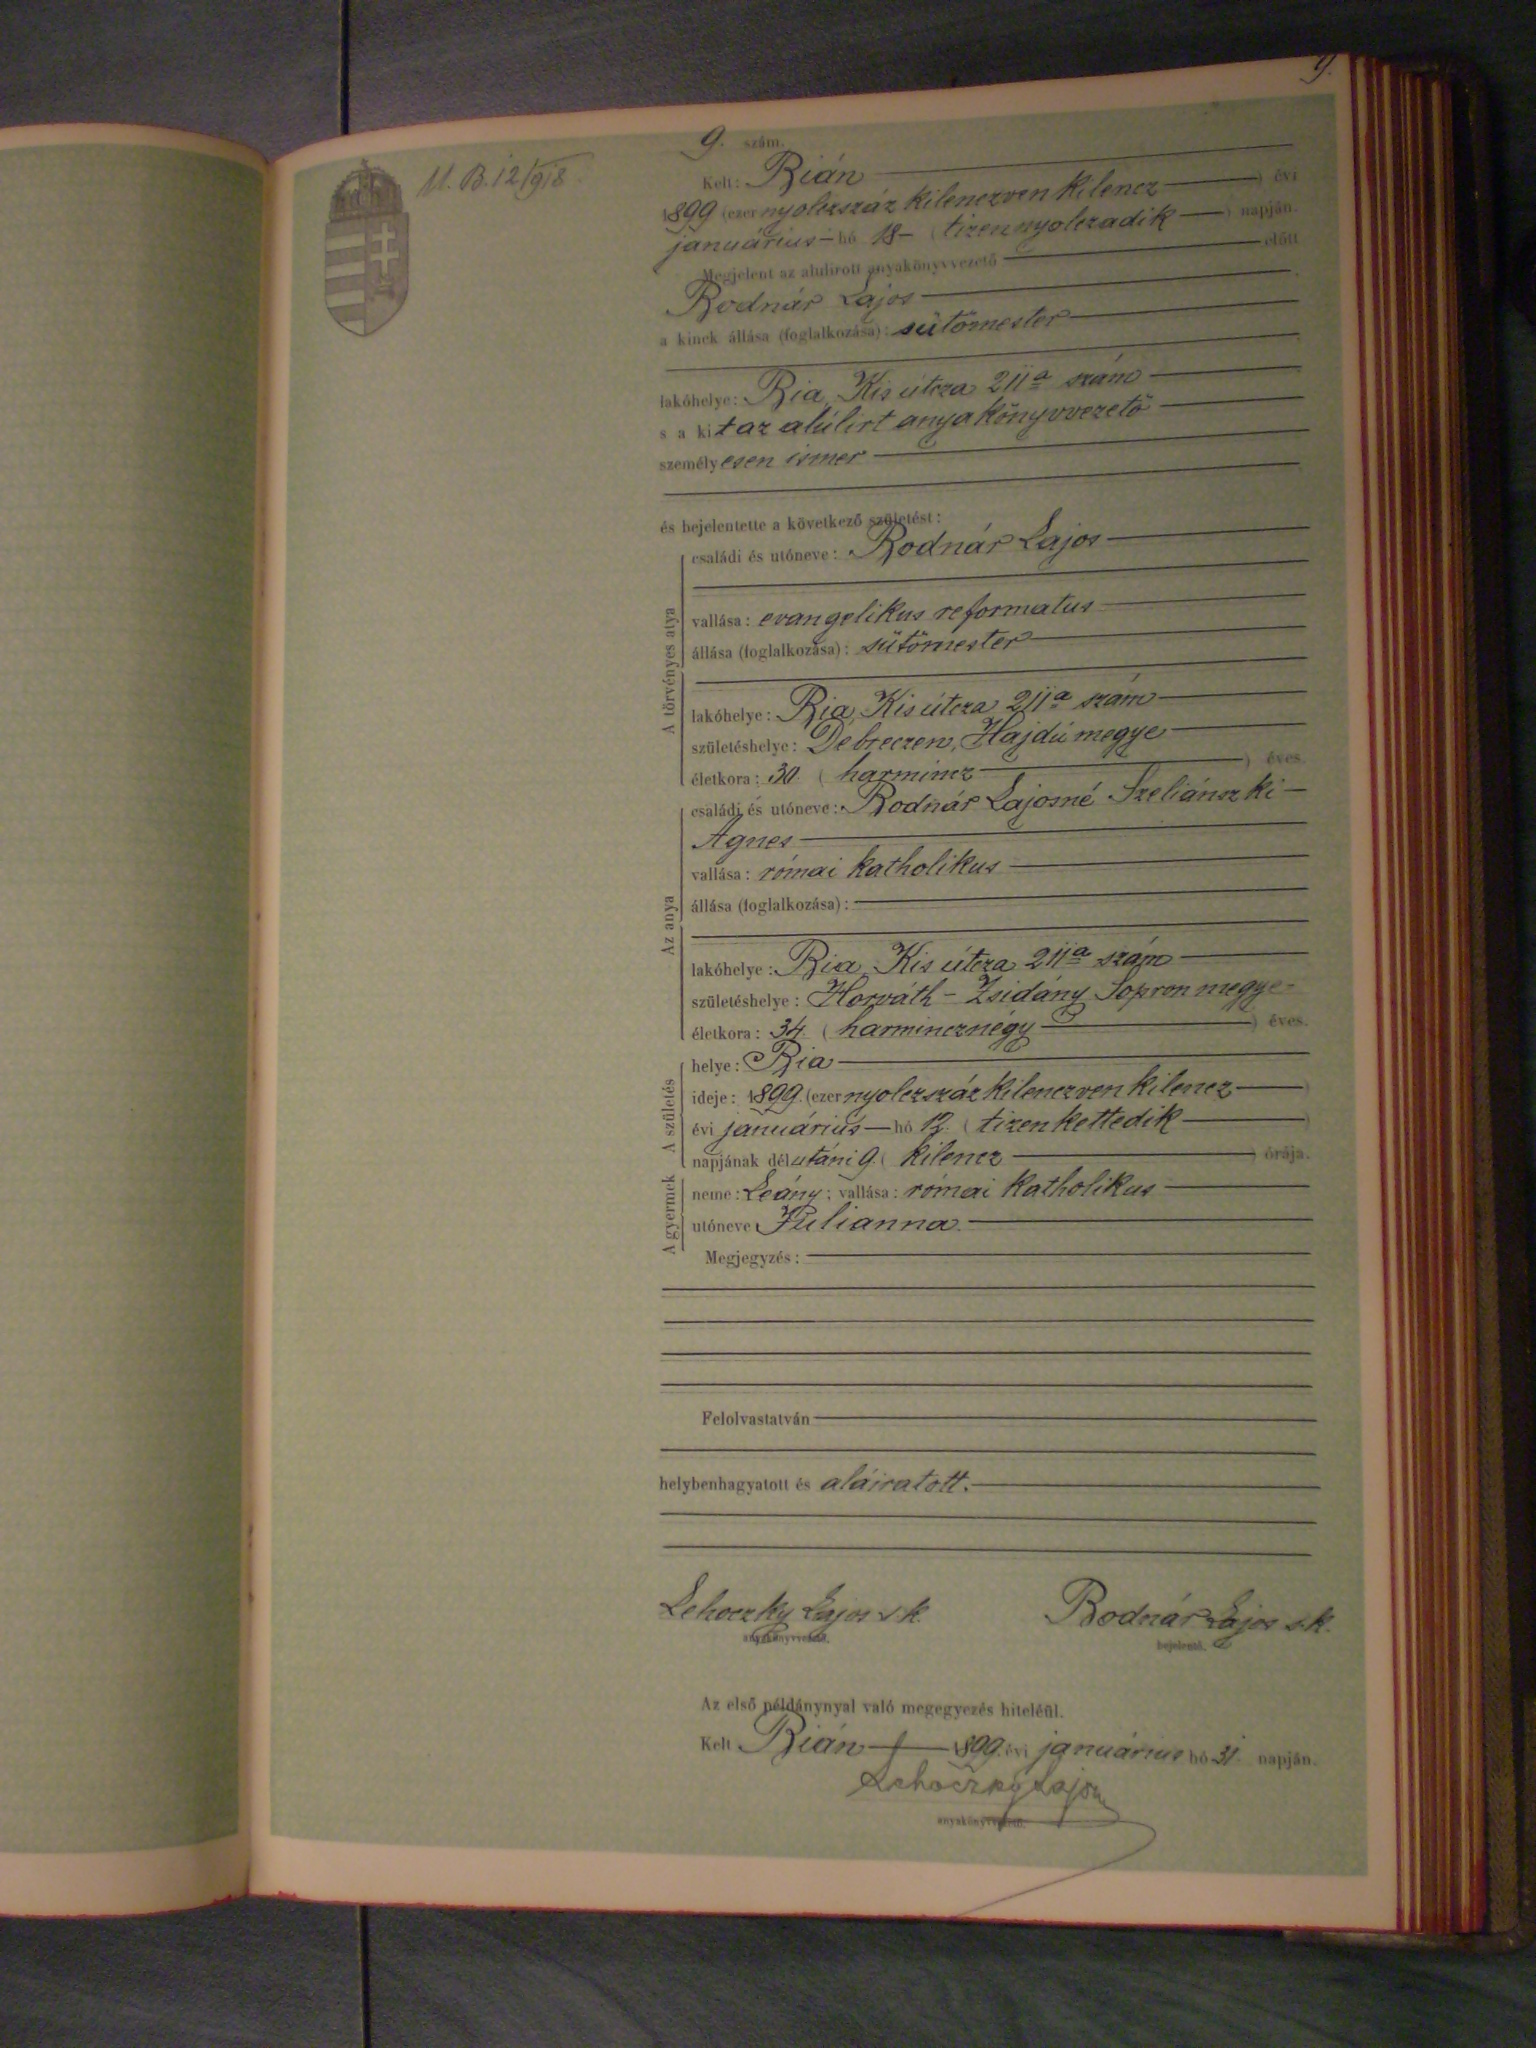 9.
9. szám.
M. B. 12/918
Kelt: Bián
1899 (ezer nyolczszáz kilenczven kilencz ) évi
januárius hó 18 ( tizennyolczadik ) napján.
Megjelent az alulirott anyakönyvvezető előtt
Bodnár Lajos
a kinek állása (foglalkozása): sütőmester
lakóhelye: Bia, Kis útcza 211a szám
s a kit az alúlirt anyakönyvvezető
személyesen ismer
és bejelentette a következő születést:
A törvényes atya
családi és utóneve: Bodnár Lajos
vallása: evangelikus reformatus
állása (foglalkozása): sütőmester
lakóhelye: Bia, Kis útcza 211a szám
születéshelye: Debreczen, Hajdú megye
életkora: 30 ( harmincz ) éves.
Az anya
családi és utóneve: Bodnár Lajosné Szeliánszki
Ágnes
vallása: római katholikus
állása (foglalkozása):
lakóhelye: Bia, Kis útcza 211a szám
születéshelye: Horváth-Zsidány Sopron megye
életkora: 34 ( harmincznégy ) éves.
A születés
helye: Bia
ideje: 1899. (ezer nyolczszáz kilenczven kilencz )
évi januárius hó 12. ( tizenkettedik )
napjának délutáni 9. ( kilencz ) órája.
A gyermek
neme: Leány; vallása: római katholikus
utóneve Julianna.
Megjegyzés:
Felolvastatván
helybenhagyatott és aláiratott.
Lehoczky Lajos s.k. Bodnár Lajos s.k.
anyakönyvvezető. bejelentő.
Az első példánynyal való megegyezés hiteléül.
Kelt Bián 1899. évi januárius hó 31 napján.
Lehoczky Lajos
anyakönyvvezető.